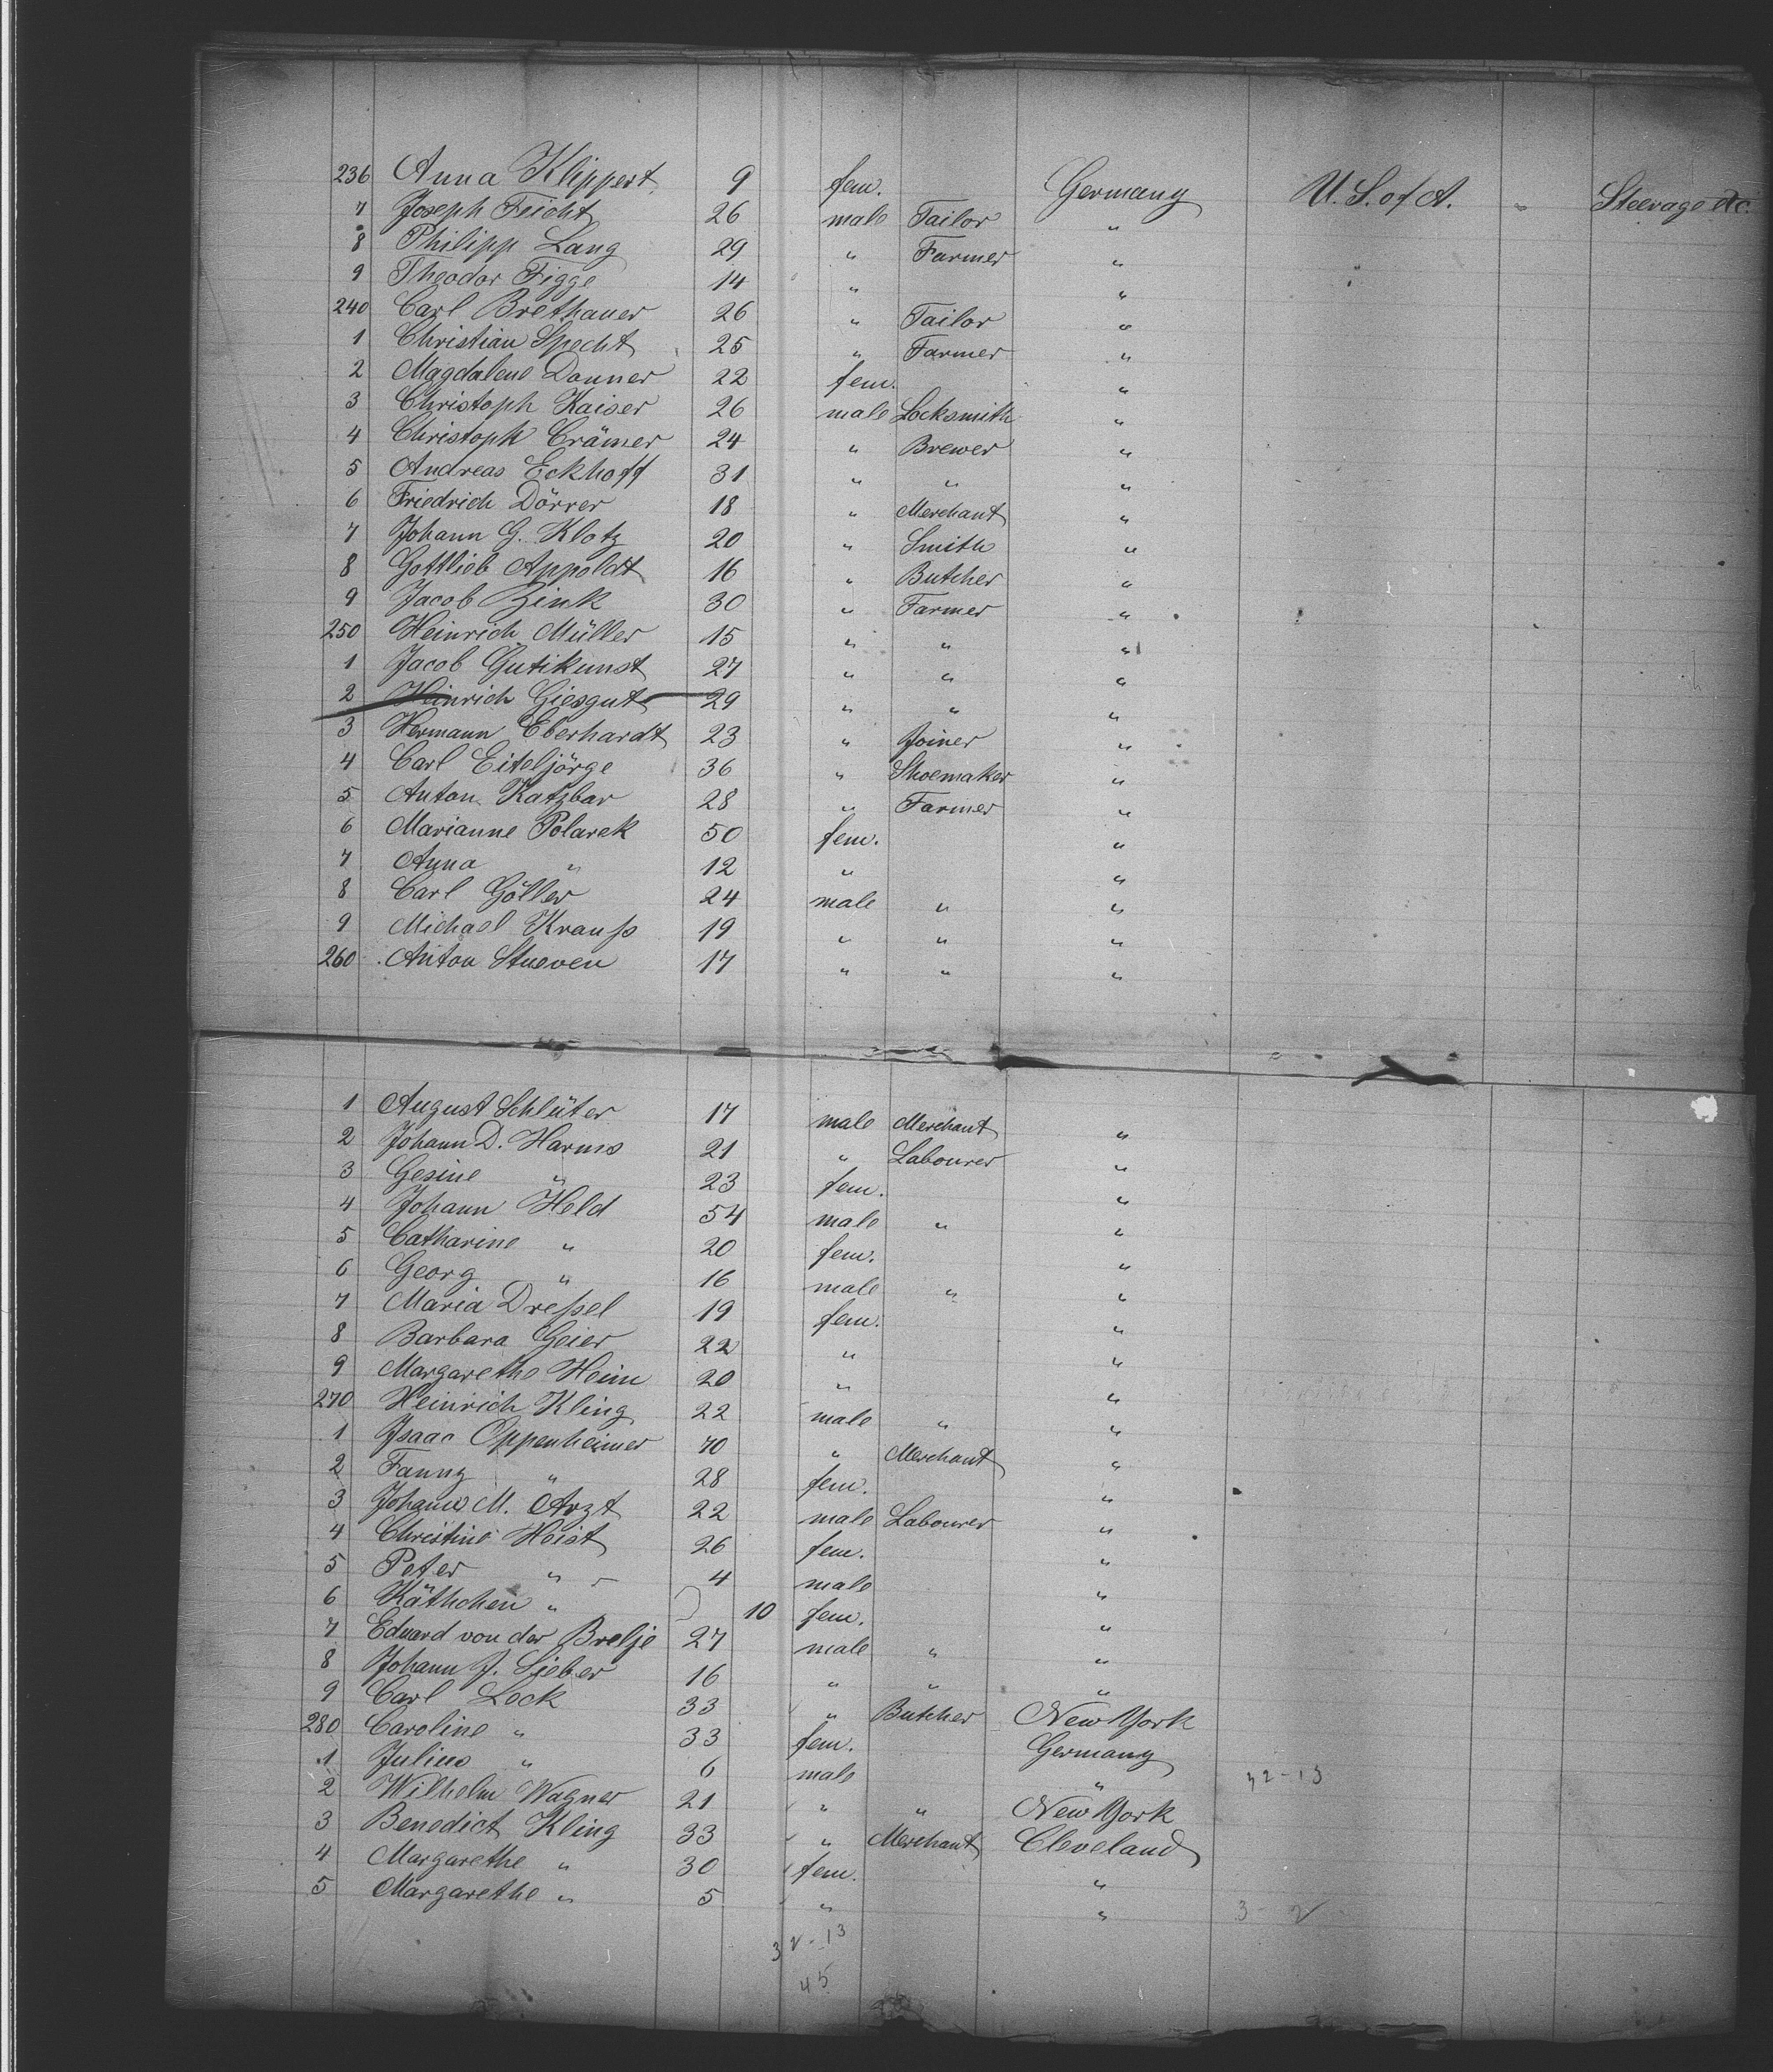 236 Anna Klippert 9 fem. Germany U. S. of A. " Steerage etc.
7 Joseph Feicht 26 male Tailor "
8 Philipp Lang 29 " Farmer "
9 Theodor Figge 14 " "
240 Carl Brethauer 26 " Tailor "
1 Christian Specht 25 " Farmer "
2 Magdalene Donner 22 fem. "
3 Christoph Kaiser 26 male Locksmith "
4 Christoph Crämer 24 " Brewer "
5 Andreas Eckhoff 31 " " "
6 Friedrich Dörrer 18 " Merchant "
7 Johann G. Klotz 20 " Smith "
8 Gottlieb Appoldt 16 " Butcher "
9 Jacob Zink 30 " Farmer "
250 Heinrich Müller 15 " " "
1 Jacob Gutikunst 27 " " "
2 Heinrich Giesgut 29 " " "
3 Hermann Eberhardt 23 " Joiner "
4 Carl Eiteljörge 36 " Shoemaker "
5 Anton Katzbar 28 " Farmer "
6 Marianne Polarek 50 fem. "
7 Anna " 12 " "
8 Carl Göller 24 male " "
9 Michael Krauß 19 " " "
260 Anton Stueven 17 " " "
1 August Schlüter 17 male Merchant "
2 Johann D. Harms 21 " Labourer "
3 Gesine " 23 fem. "
4 Johann Held 54 male " "
5 Catharine " 20 fem. "
6 Georg " 16 male " "
7 Maria Dreßel 19 fem. "
8 Barbara Geier 22 " "
9 Margarethe Heim 20 " "
270 Heinrich Kling 22 male " "
1 Isaac Oppenheimer 70 " Merchant "
2 Fanny " 28 fem. "
3 Johann M. Arzt 22 male Labourer "
4 Christine Heist 26 fem. "
5 Peter " 4 male "
6 Käthchen " 10 fem. "
7 Eduard von der Brelje 27 male " "
8 Johann J. Sieber 16 " " "
9 Carl Lock 33 " Butcher New York
280 Caroline " 33 fem. Germany
1 Julius " 6 male " 32-13
2 Wilhelm Wagner 21 " " New York
3 Benedict Kling 33 " Merchant Cleveland
4 Margarethe " 30 fem. "
5 Margarethe " 5 " " 3-2
32-13
45